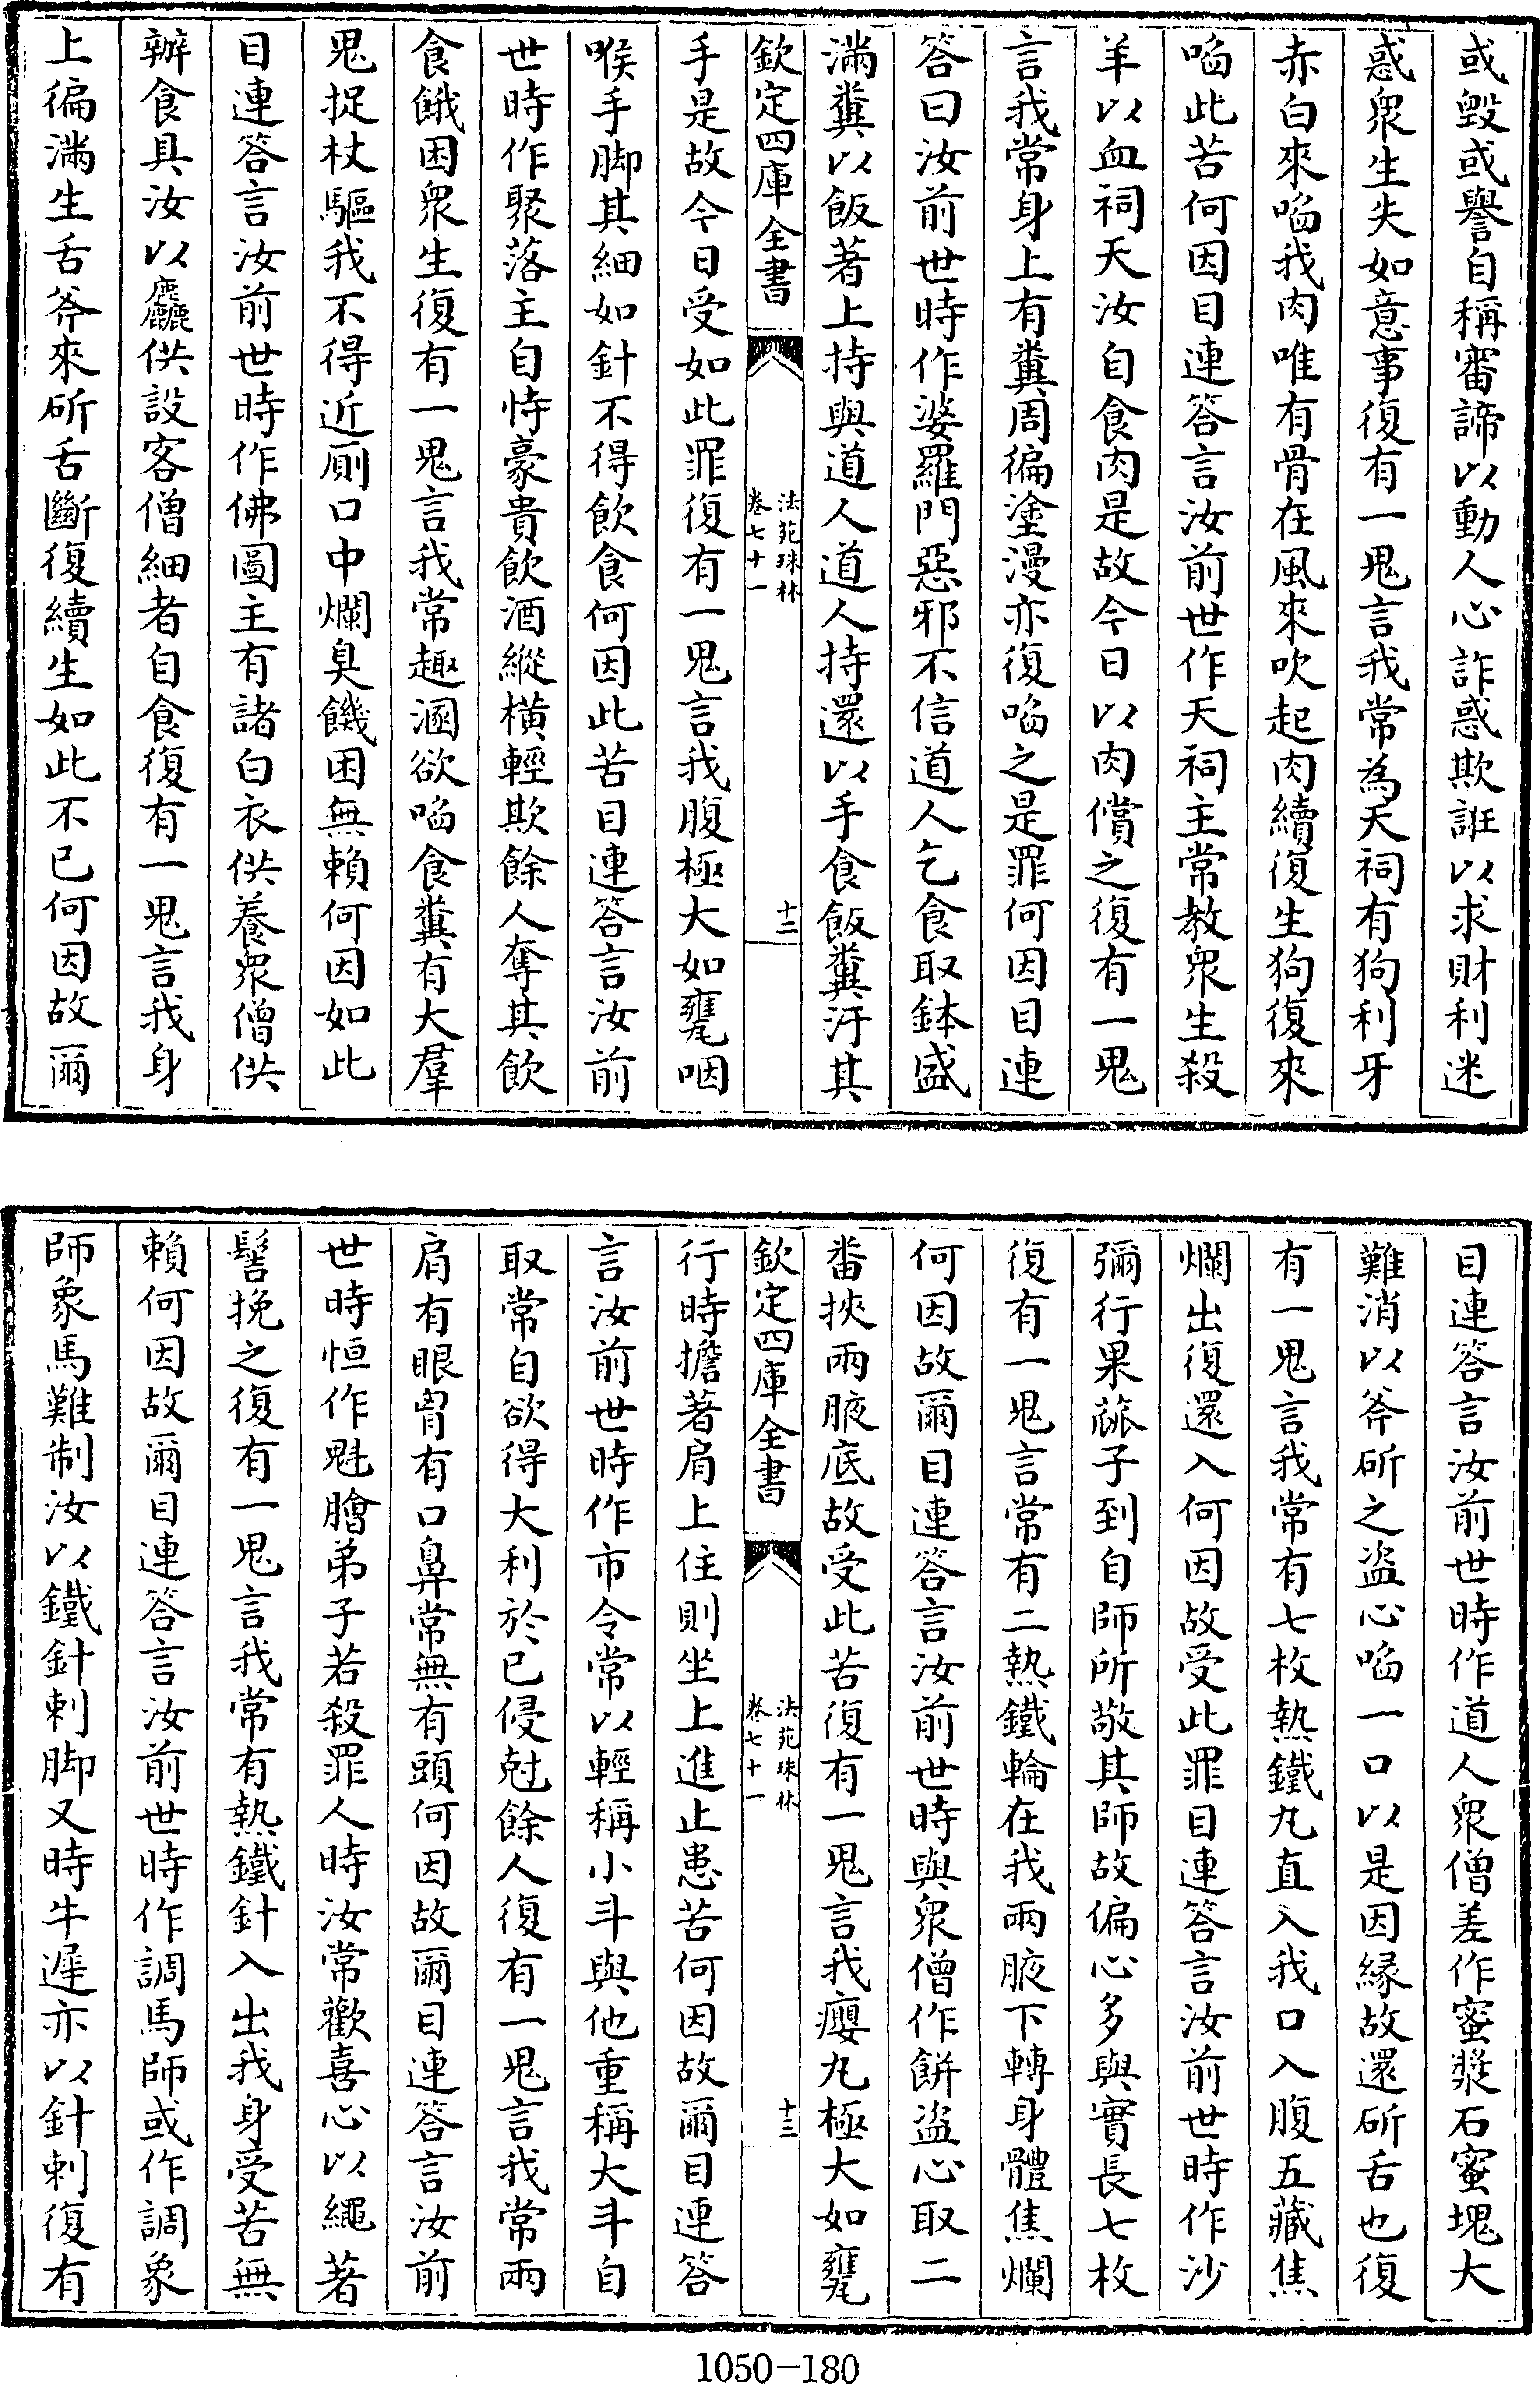 或毀或譽自稱審諦以動人心詐惑欺誑以求財利迷
惑衆生失如意事復有一鬼言我常為天祠有狗利牙
赤白來啗我肉唯有骨在風來吹起肉續復生狗復來
啗此苦何因目連答言汝前世作天祠主常教衆生殺
羊以血祠天汝自食肉是故今日以肉償之復有一鬼
言我常身上有糞周徧塗漫亦復啗之是罪何因目連
答曰汝前世時作婆羅門惡邪不信道人乞食取鉢盛
滿糞以飯著上持與道人道人持還以手食飯糞汙其
欽定四庫全書
法苑珠林
卷七十一
十二
手是故今日受如此罪復有一鬼言我腹極大如甕咽
喉手脚其細如針不得飲食何因此苦目連答言汝前
世時作聚落主自恃豪貴飲酒縱橫輕欺餘人奪其飲
食餓困衆生復有一鬼言我常趣溷欲啗食糞有大羣
鬼捉杖驅我不得近厠口中爛臭饑困無賴何因如此
目連答言汝前世時作佛圖主有諸白衣供養衆僧供
辦食具汝以麤供設客僧細者自食復有一鬼言我身
上徧滿生舌斧來斫舌斷復續生如此不已何因故爾
目連答言汝前世時作道人衆僧差作蜜漿石蜜塊大
難消以斧斫之盜心啗一口以是因緣故還斫舌也復
有一鬼言我常有七枚熱鐵丸直入我口入腹五藏焦
爛出復還入何因故受此罪目連答言汝前世時作沙
彌行果蓏子到自師所敬其師故偏心多與實長七枚
復有一鬼言常有二熱鐵輪在我兩腋下轉身體焦爛
何因故爾目連答言汝前世時與衆僧作餅盜心取二
番挾兩腋底故受此苦復有一鬼言我癭丸極大如甕
欽定四庫全書
法苑珠林
卷七十一
十三
行時擔著肩上住則坐上進止患苦何因故爾目連答
言汝前世時作市令常以輕稱小斗與他重稱大斗自
取常自欲得大利於已侵尅餘人復有一鬼言我常兩
肩有眼胷有口鼻常無有頭何因故爾目連答言汝前
世時恒作魁膾弟子若殺罪人時汝常歡喜心以繩著
髻挽之復有一鬼言我常有熱鐵針入出我身受苦無
賴何因故爾目連答言汝前世時作調馬師或作調象
師象馬難制汝以鐵針刺脚又時牛遲亦以針刺復有
1050-180